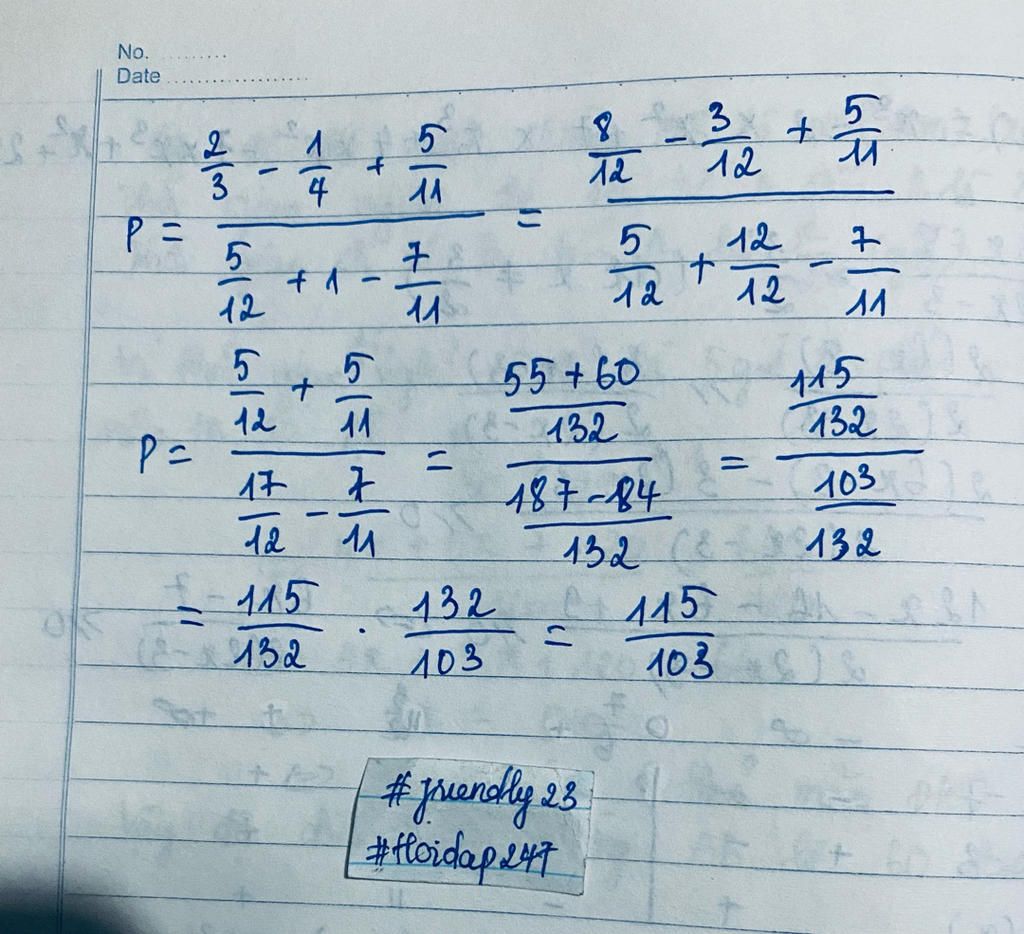 No. .........
Date ....................
P = (2/3 - 1/4 + 5/11) / (5/12 + 1 - 7/11) = (8/12 - 3/12 + 5/11) / (5/12 + 12/12 - 7/11)
P = (5/12 + 5/11) / (17/12 - 7/11) = ((55 + 60)/132) / ((187 - 184)/132) = (115/132) / (103/132)
= 115/132 . 132/103 = 115/103
#friendly23
#Hoidap247